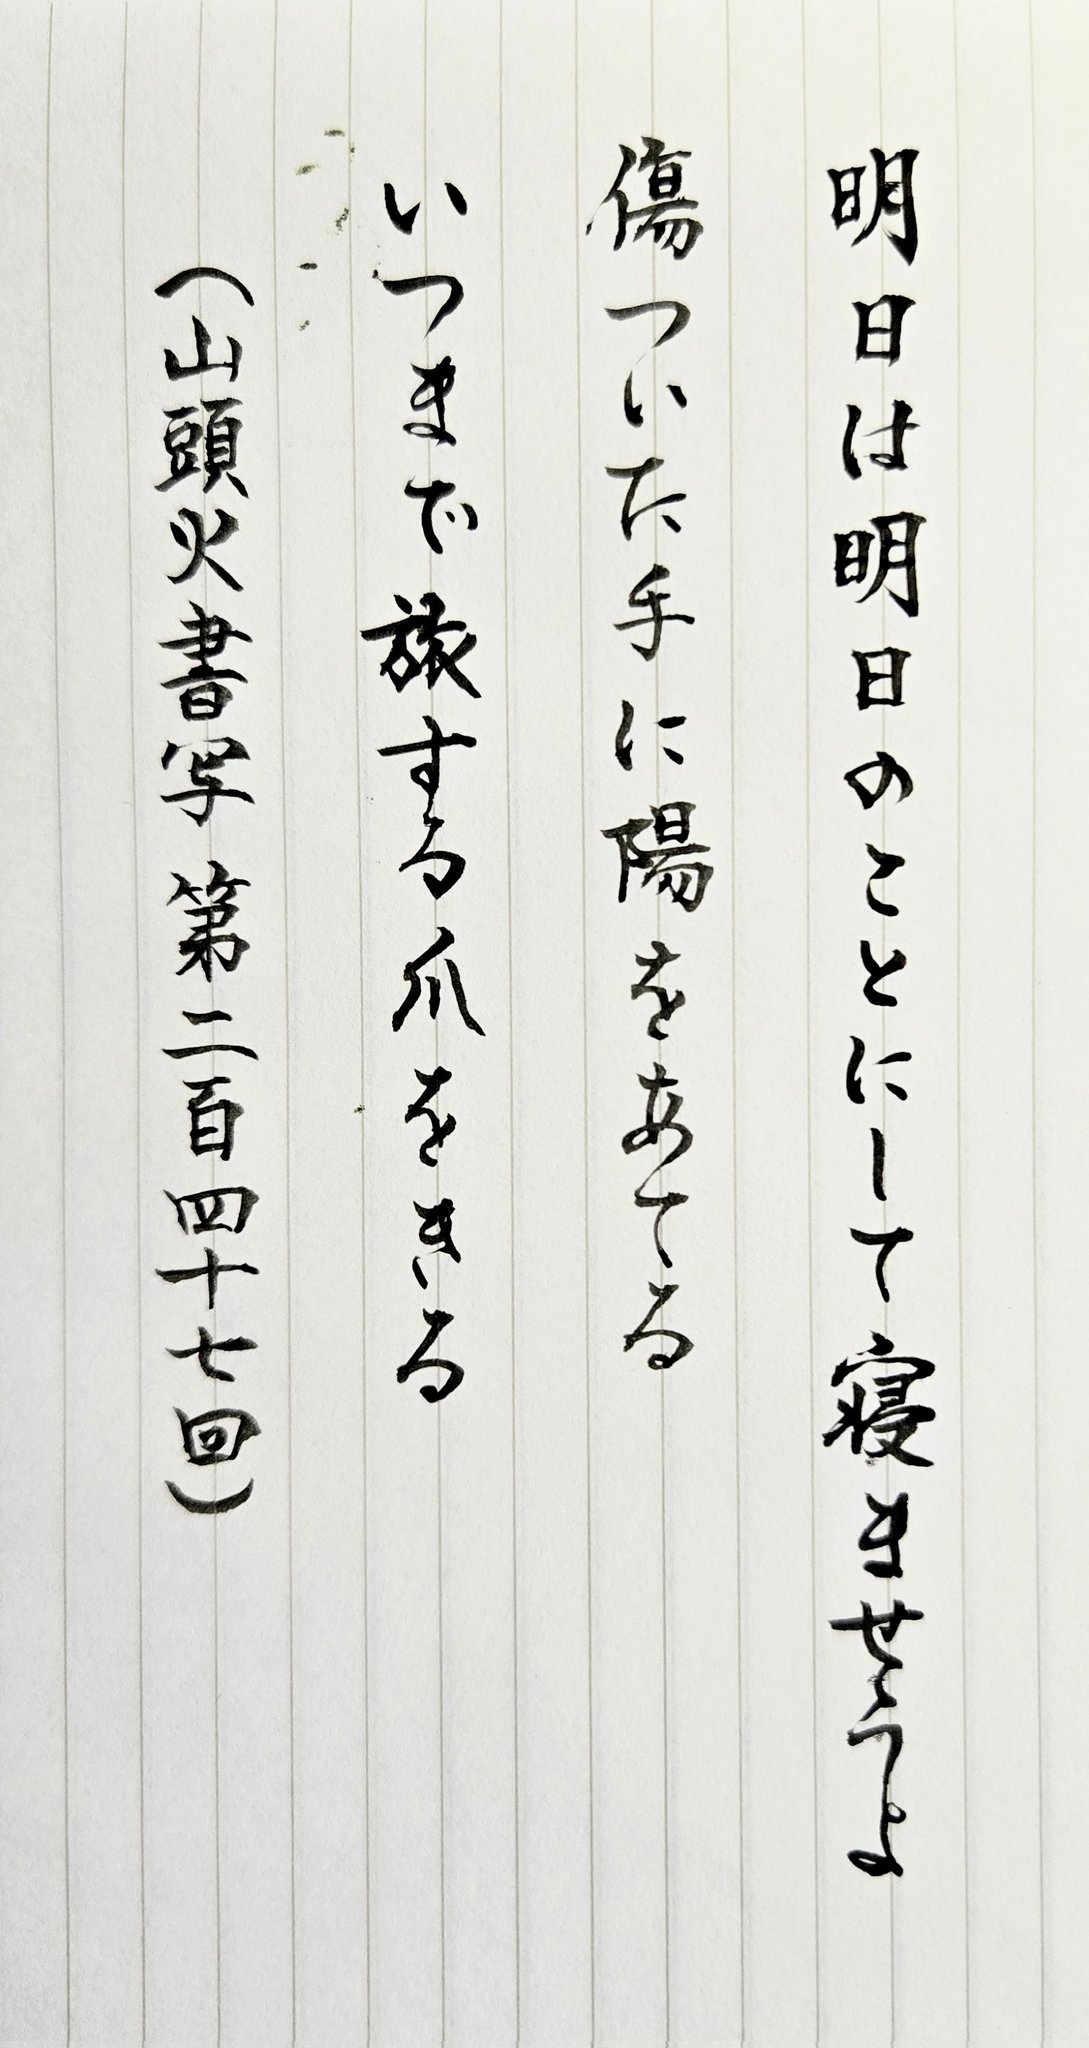 明日は明日のことにして寝ませうよ
傷ついた手に陽をあてる
いつまで旅する爪をきる
（山頭火書写 第二百四十七回）